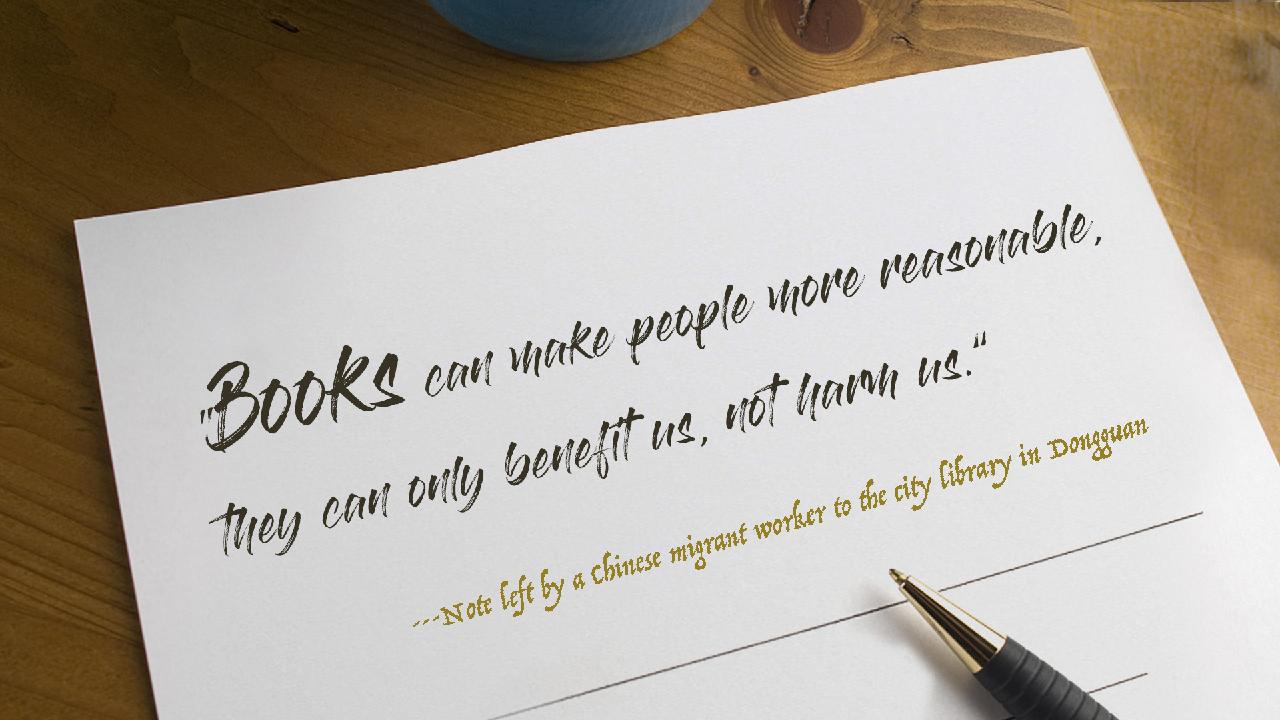 "Books can make people more reasonable,
they can only benefit us, not harm us."
---Note left by a Chinese migrant worker to the city library in Dongguan